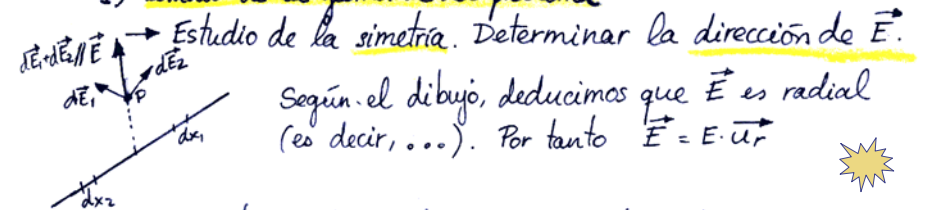 → Estudio de la simetría. Determinar la dirección de E⃗.
dE⃗₁+dE⃗₂ // E⃗
dE⃗₂
dE⃗₁
P
Según el dibujo, deducimos que E⃗ es radial
dx₁
(es decir, ...). Por tanto E⃗ = E·u⃗ᵣ
dx₂